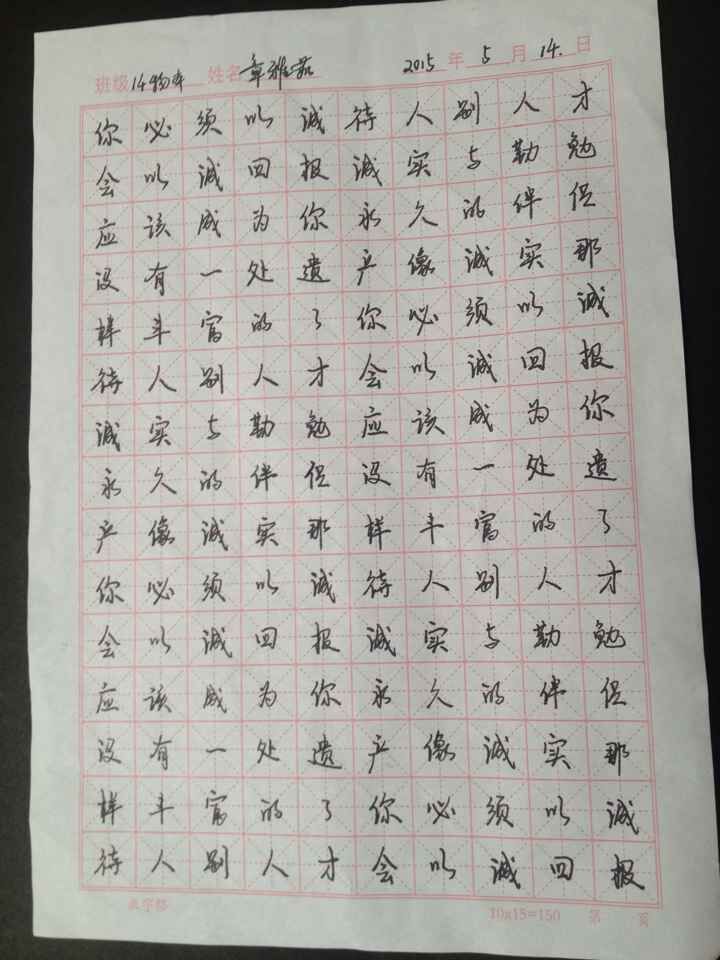 班级 14物本 姓名 章雅茹 2015 年 5 月 14. 日
你必须以诚待人别人才
会以诚回报诚实与勤勉
应该成为你永久的伴侣
没有一处遗产像诚实那
样丰富的了你必须以诚
待人别人才会以诚回报
诚实与勤勉应该成为你
永久的伴侣没有一处遗
产像诚实那样丰富的了
你必须以诚待人别人才
会以诚回报诚实与勤勉
应该成为你永久的伴侣
没有一处遗产像诚实那
样丰富的了你必须以诚
待人别人才会以诚回报
10x15=150 第 页